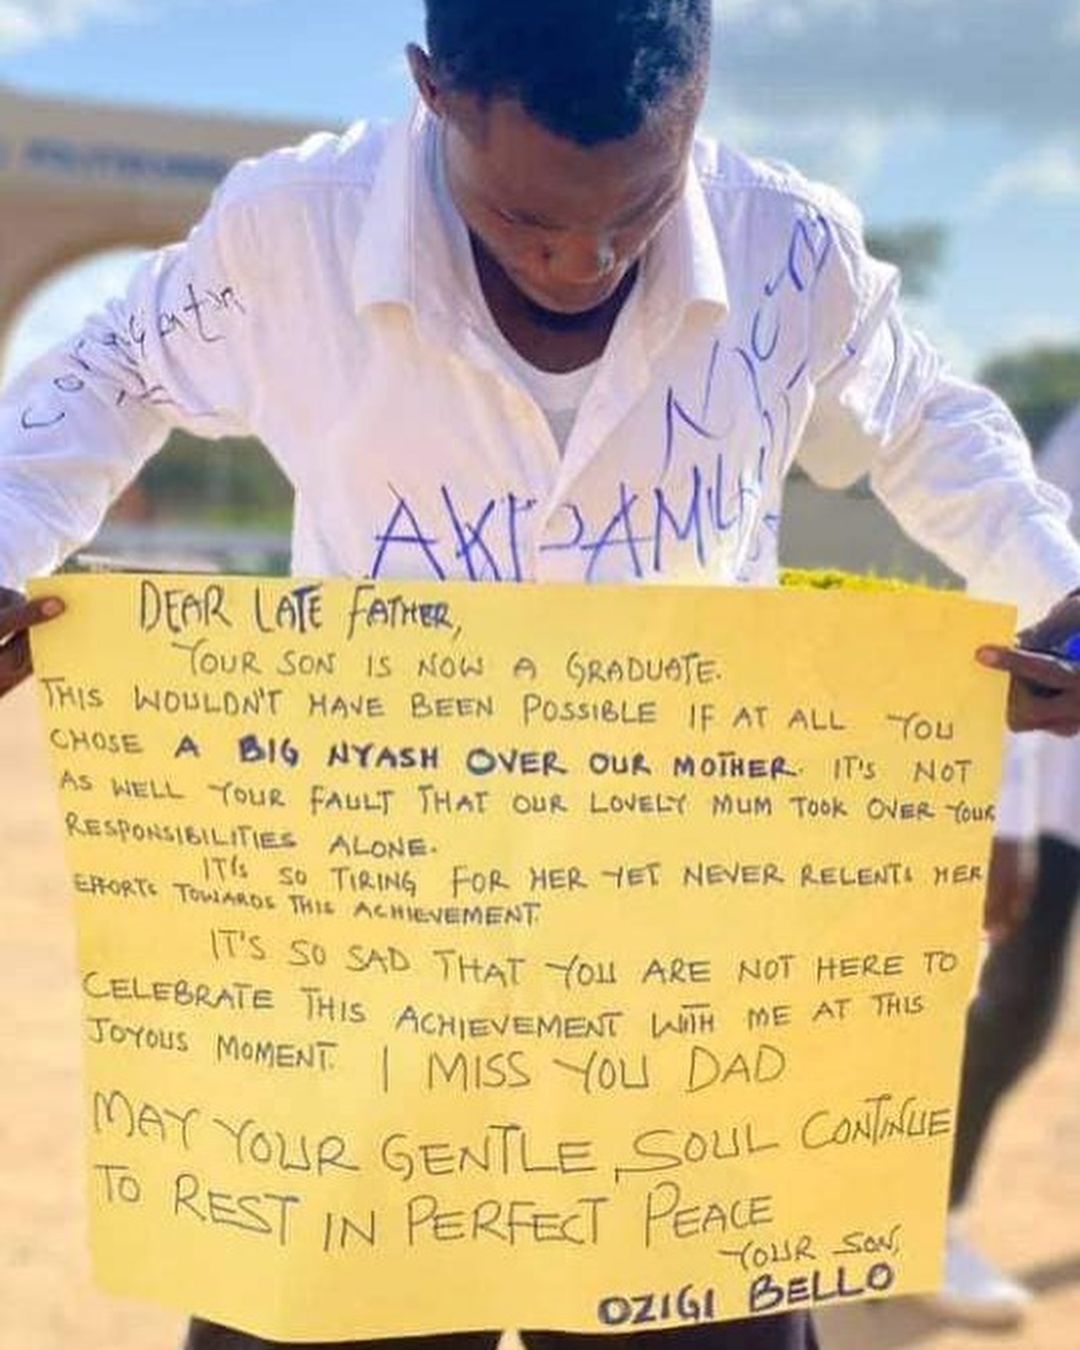 POLYTECHNIC
DEAR LATE FATHER,
YOUR SON IS NOW A GRADUATE.
THIS WOULDN'T HAVE BEEN POSSIBLE IF AT ALL YOU
CHOSE A BIG NYASH OVER OUR MOTHER. IT'S NOT
AS WELL YOUR FAULT THAT OUR LOVELY MUM TOOK OVER YOUR
RESPONSIBILITIES ALONE.
IT'S SO TIRING FOR HER YET NEVER RELENTS HER
EFFORTS TOWARDS THIS ACHIEVEMENT.
IT'S SO SAD THAT YOU ARE NOT HERE TO
CELEBRATE THIS ACHIEVEMENT WITH ME AT THIS
JOYOUS MOMENT. I MISS YOU DAD
MAY YOUR GENTLE SOUL CONTINUE
TO REST IN PERFECT PEACE
YOUR SON,
OZIGI BELLO